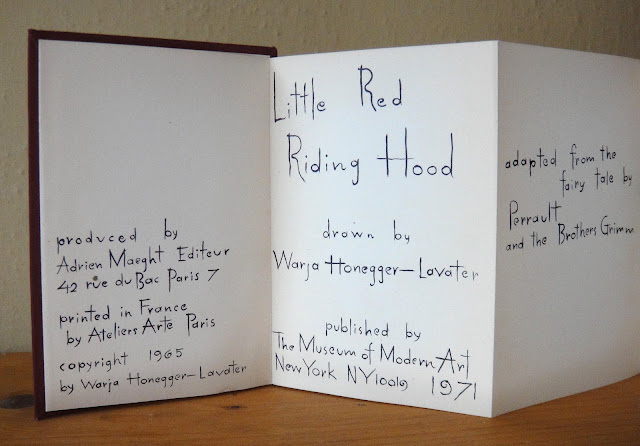 produced by
Adrien Maeght Editeur
42 rue du Bac Paris 7
printed in France
by Ateliers Arte Paris
copyright 1965
by Warja Honegger-Lavater
Little Red
Riding Hood
drawn by
Warja Honegger-Lavater
published by
The Museum of Modern Art
New York NY 10019 1971
adapted from the
fairy tale by
Perrault
and the Brothers Grimm